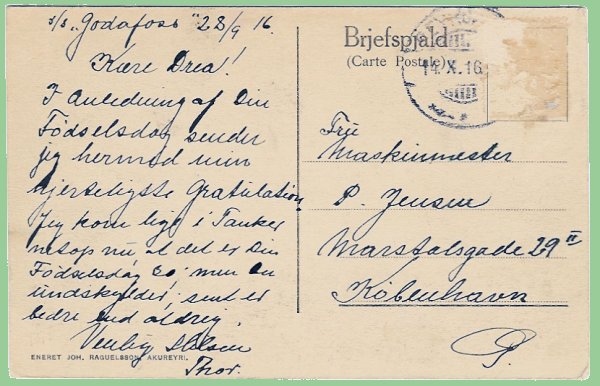 s/s "Godafoss" 28/9 16.
Kære Drea!
I Anledning af Din
Fødselsdag sender
jeg hermed min
hjerteligste Gratulation.
Jeg kom lige i Tanker
netop nu, at det er Din
Fødselsdag men Du
undskylder; sent er
bedre end aldrig.
Venlig Hilsen
Thor.
ENERET JOH. RAGUELSSON, AKUREYRI.
Brjefspjald
(Carte Postale)
14.X.16
Fru
Maskinmester
P. Jensen
Marstalsgade 29 II
København